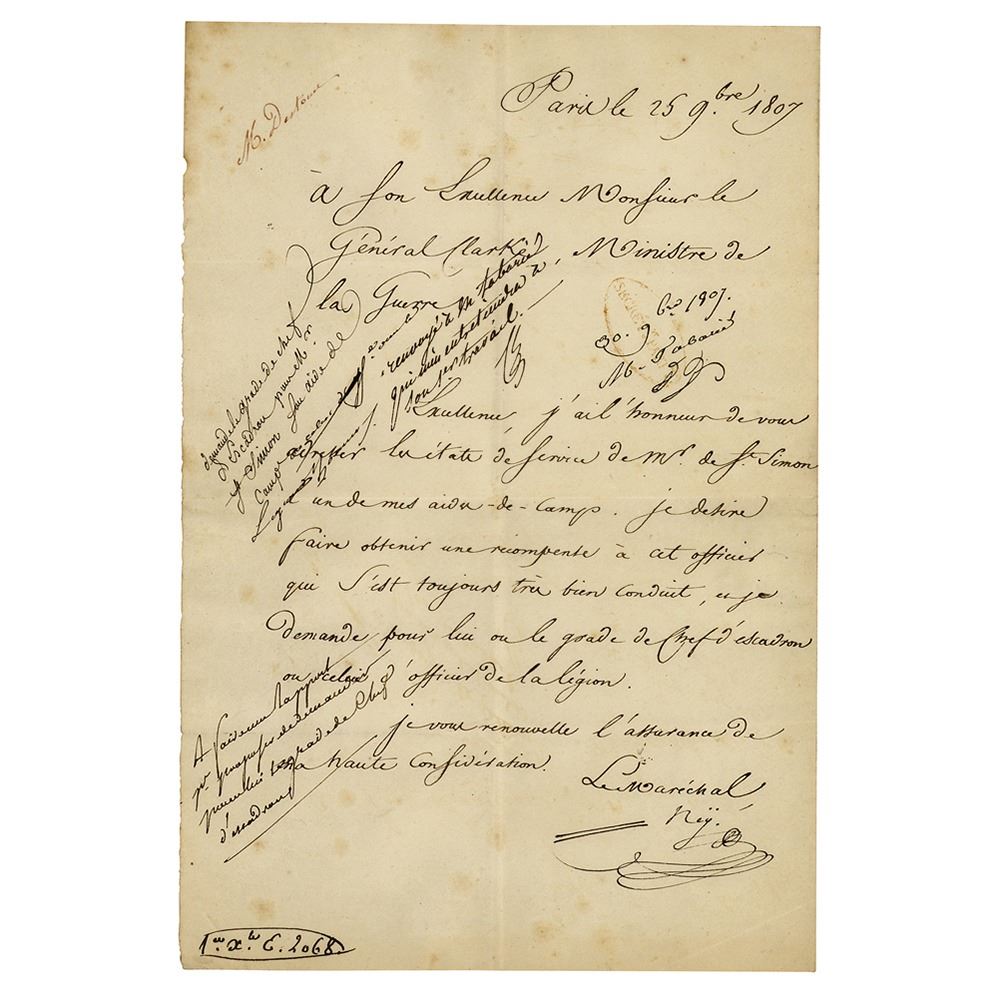 Paris le 25 9.bre 1807
M.
à son Excellence Monsieur le
Général Clarke, Ministre de
la Guerre
renvoyé à M Tabarié
qui m'en entretiendra à
son 1er travail.
30. 9bre 1807.
Mr Tabarié
demande le grade de chef
d'Escadron pour Mr
St Simon son aide de
Camp
Excellence j'ai l'honneur de vous
adresser les états de service de mr. de St. Simon
l'un de mes aides-de-camp. je desire
faire obtenir une recompense à cet officier
qui s'est toujours très bien conduit, et je
demande pour lui ou le grade de Chef d'escadron
ou celui d'officier de la légion.
je vous renouvelle l'assurance de
ma haute considération.
Le Maréchal
Ney.
A faire un rapport
pr. proposer de demander
pour lui le grade de Chef
d'escadron
1er xbre C. 2068.